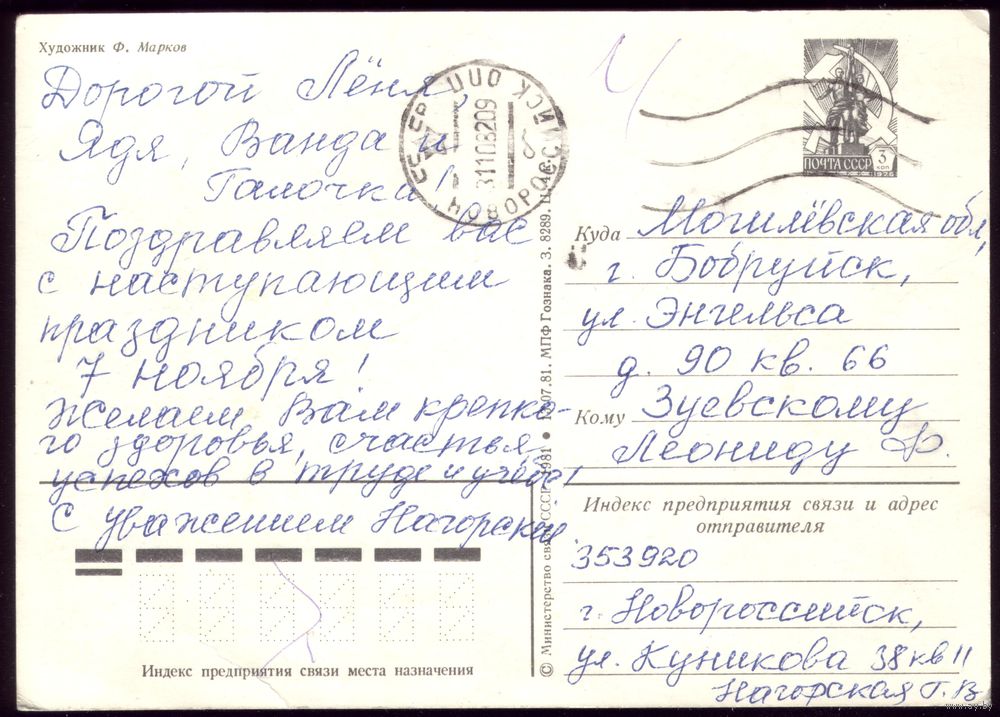 Художник Ф. Марков
Дорогой Лёня,
Ядя, Ванда и
Галочка!
Поздравляем вас
с наступающим
праздником
7 ноября!
Желаем Вам крепко-
го здоровья, счастья,
успехов в труде и учёбе!
С уважением Нагорские
Индекс предприятия связи места назначения
СССР ОПП
311082 09
НОВОРОССИЙСК
© Министерство связи СССР, 1981 • 07.81. МПФ Гознака. З. 8289. Ц. 4 к.
ПОЧТА СССР 3 коп
1976
Куда Могилёвская обл,
г. Бобруйск,
ул. Энгельса
д. 90 кв. 66
Кому Зуевскому
Леониду Ф.
Индекс предприятия связи и адрес
отправителя
353920
г. Новороссийск,
ул. Куникова 38 кв 11
Нагорская Г. В.
www.ay.by